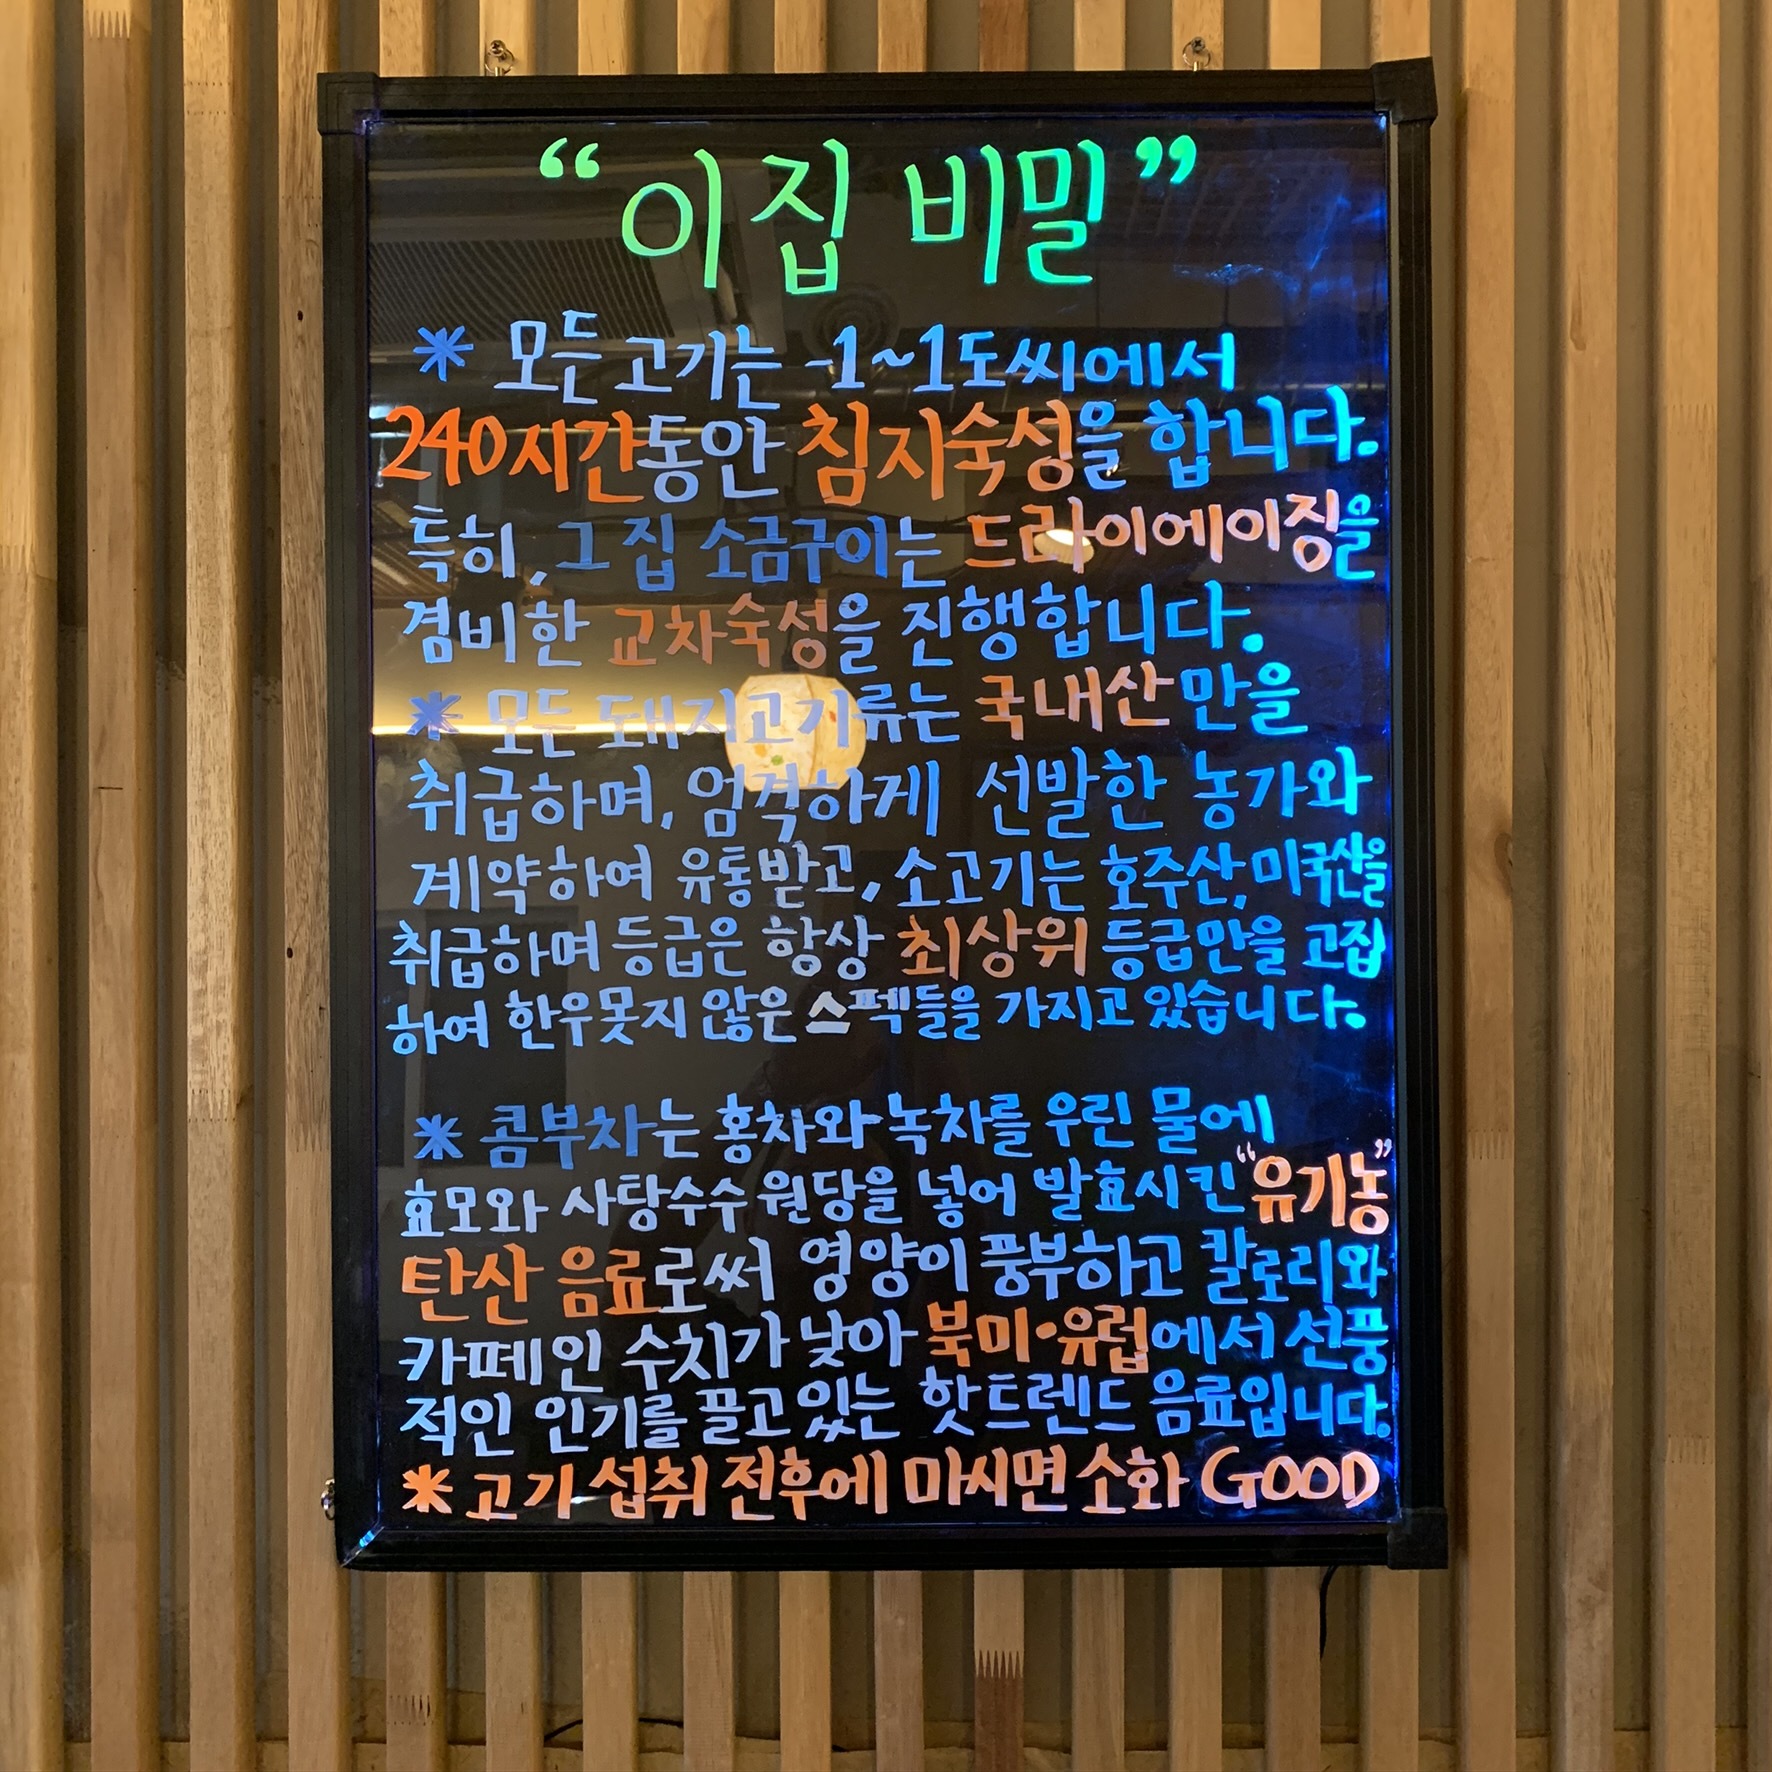 “이집 비밀”
* 모든 고기는 -1~1도씨에서
240시간동안 침지숙성을 합니다.
특히, 그 집 소금구이는 드라이에이징을
겸비한 교차숙성을 진행합니다.
* 모든 돼지고기류는 국내산만을
취급하며, 엄격하게 선발한 농가와
계약하여 유통받고, 소고기는 호주산, 미국산을
취급하며 등급은 항상 최상위 등급만을 고집
하여 한우못지 않은 스펙들을 가지고 있습니다.
* 콤부차는 홍차와 녹차를 우린 물에
효모와 사탕수수 원당을 넣어 발효시킨 “유기농”
탄산 음료로써 영양이 풍부하고 칼로리와
카페인 수치가 낮아 북미·유럽에서 선풍
적인 인기를 끌고 있는 핫트렌드 음료입니다.
* 고기 섭취 전후에 마시면 소화 GOOD